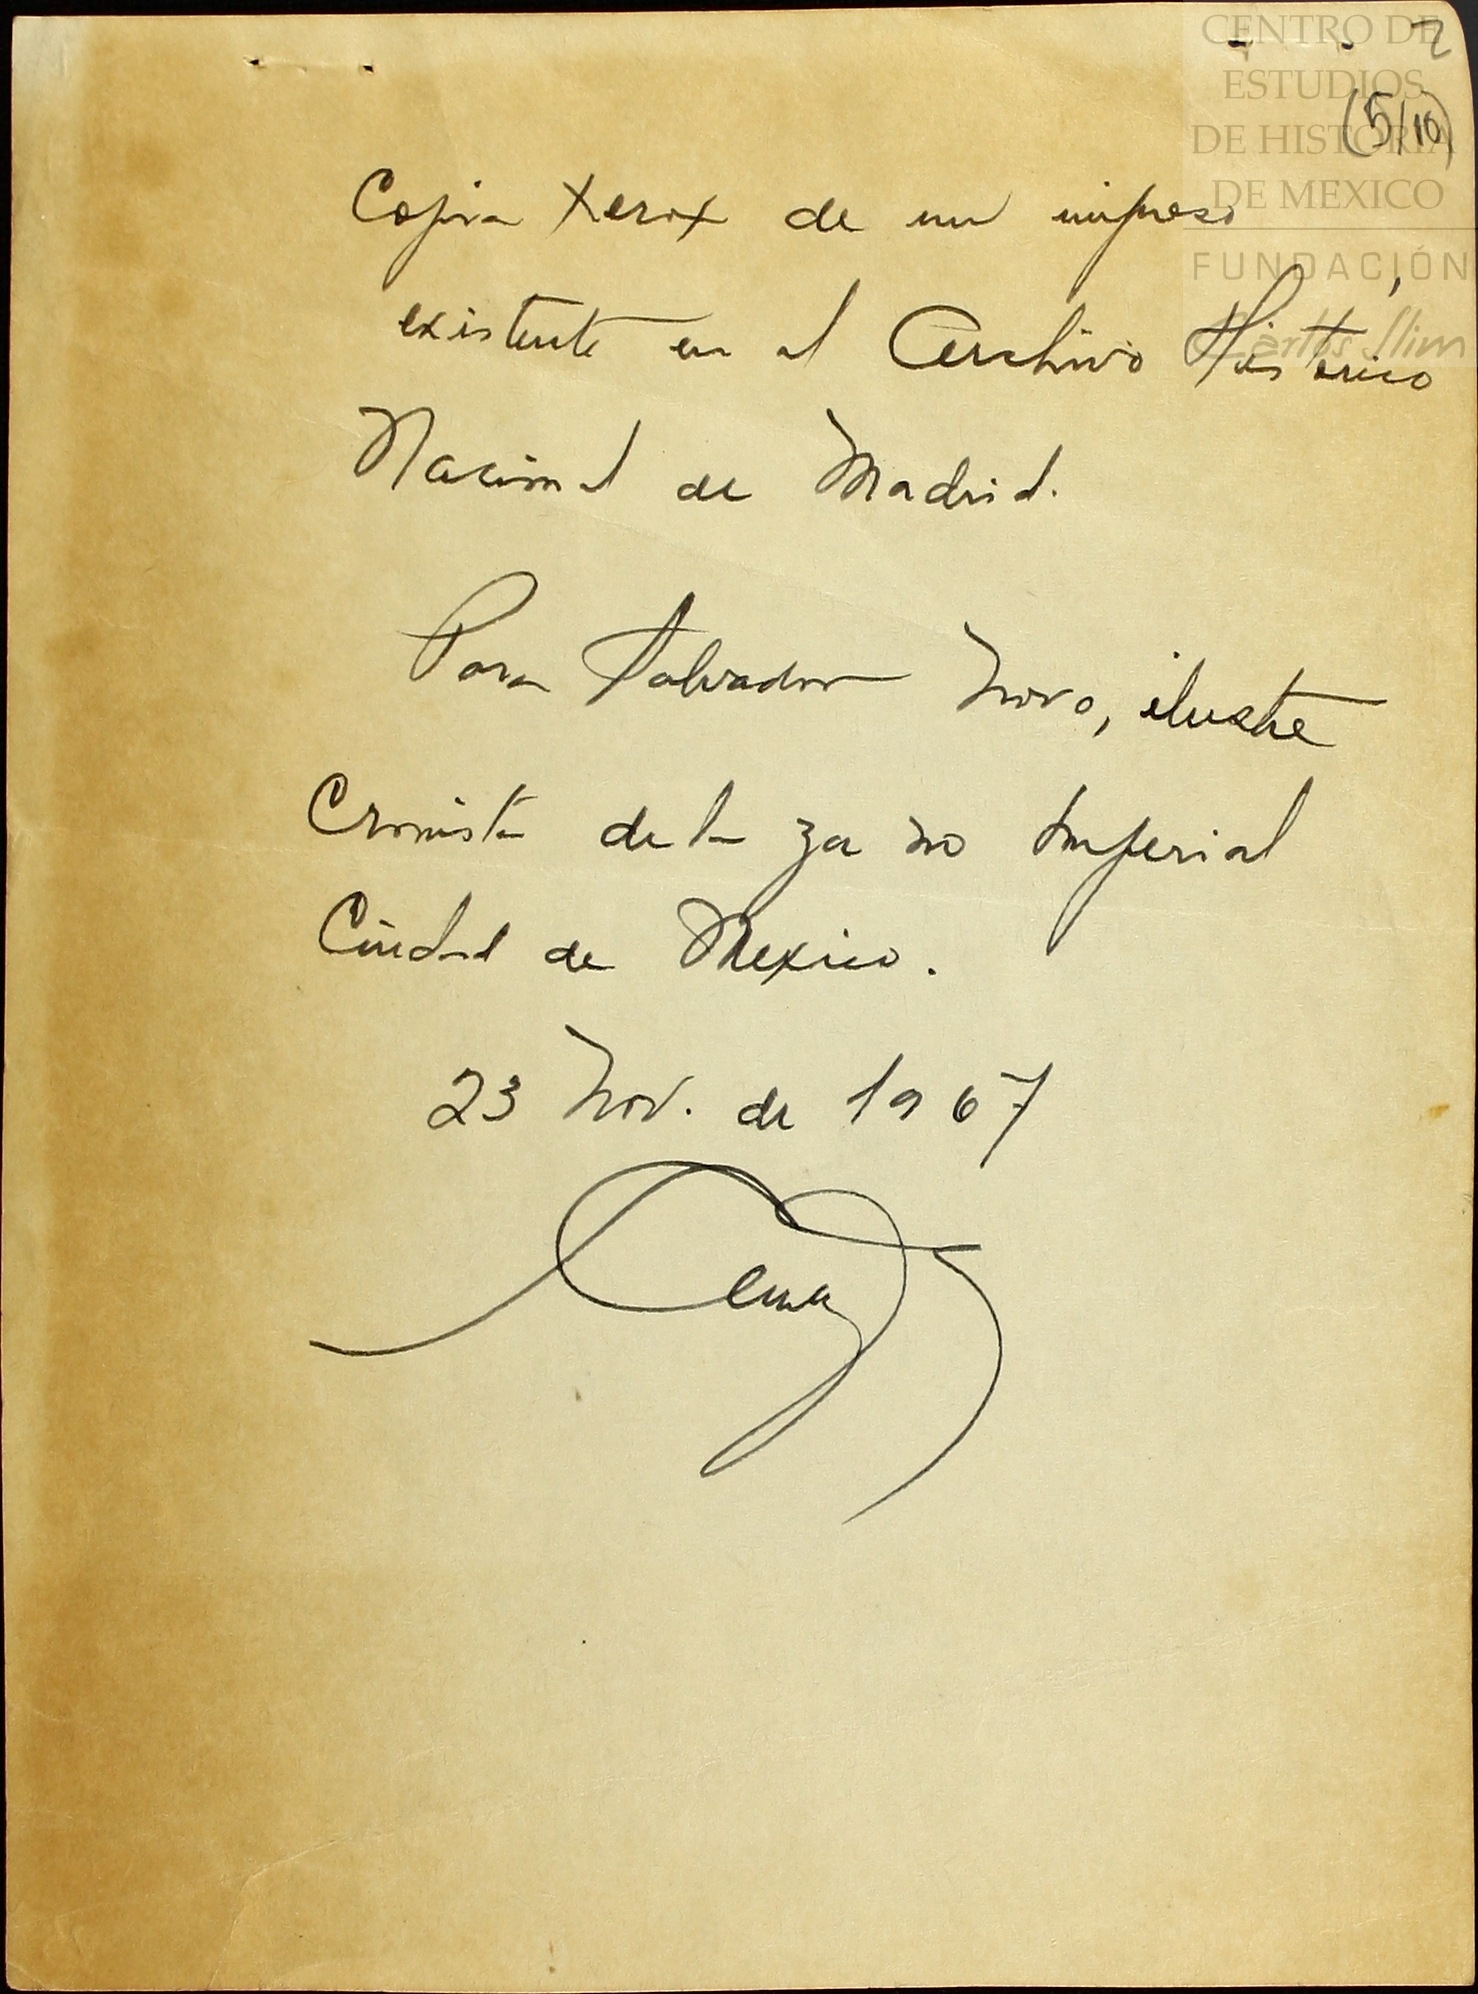 CENTRO DE
ESTUDIOS
DE HISTORIA
DE MEXICO
FUNDACIÓN
Carlos Slim
2
(5/16)
Copia Xerox de un impreso
existente en el Archivo Histórico
Nacional de Madrid.
Para Salvador Novo, ilustre
Cronista de la ya no Imperial
Ciudad de Mexico.
23 Nov. de 1967